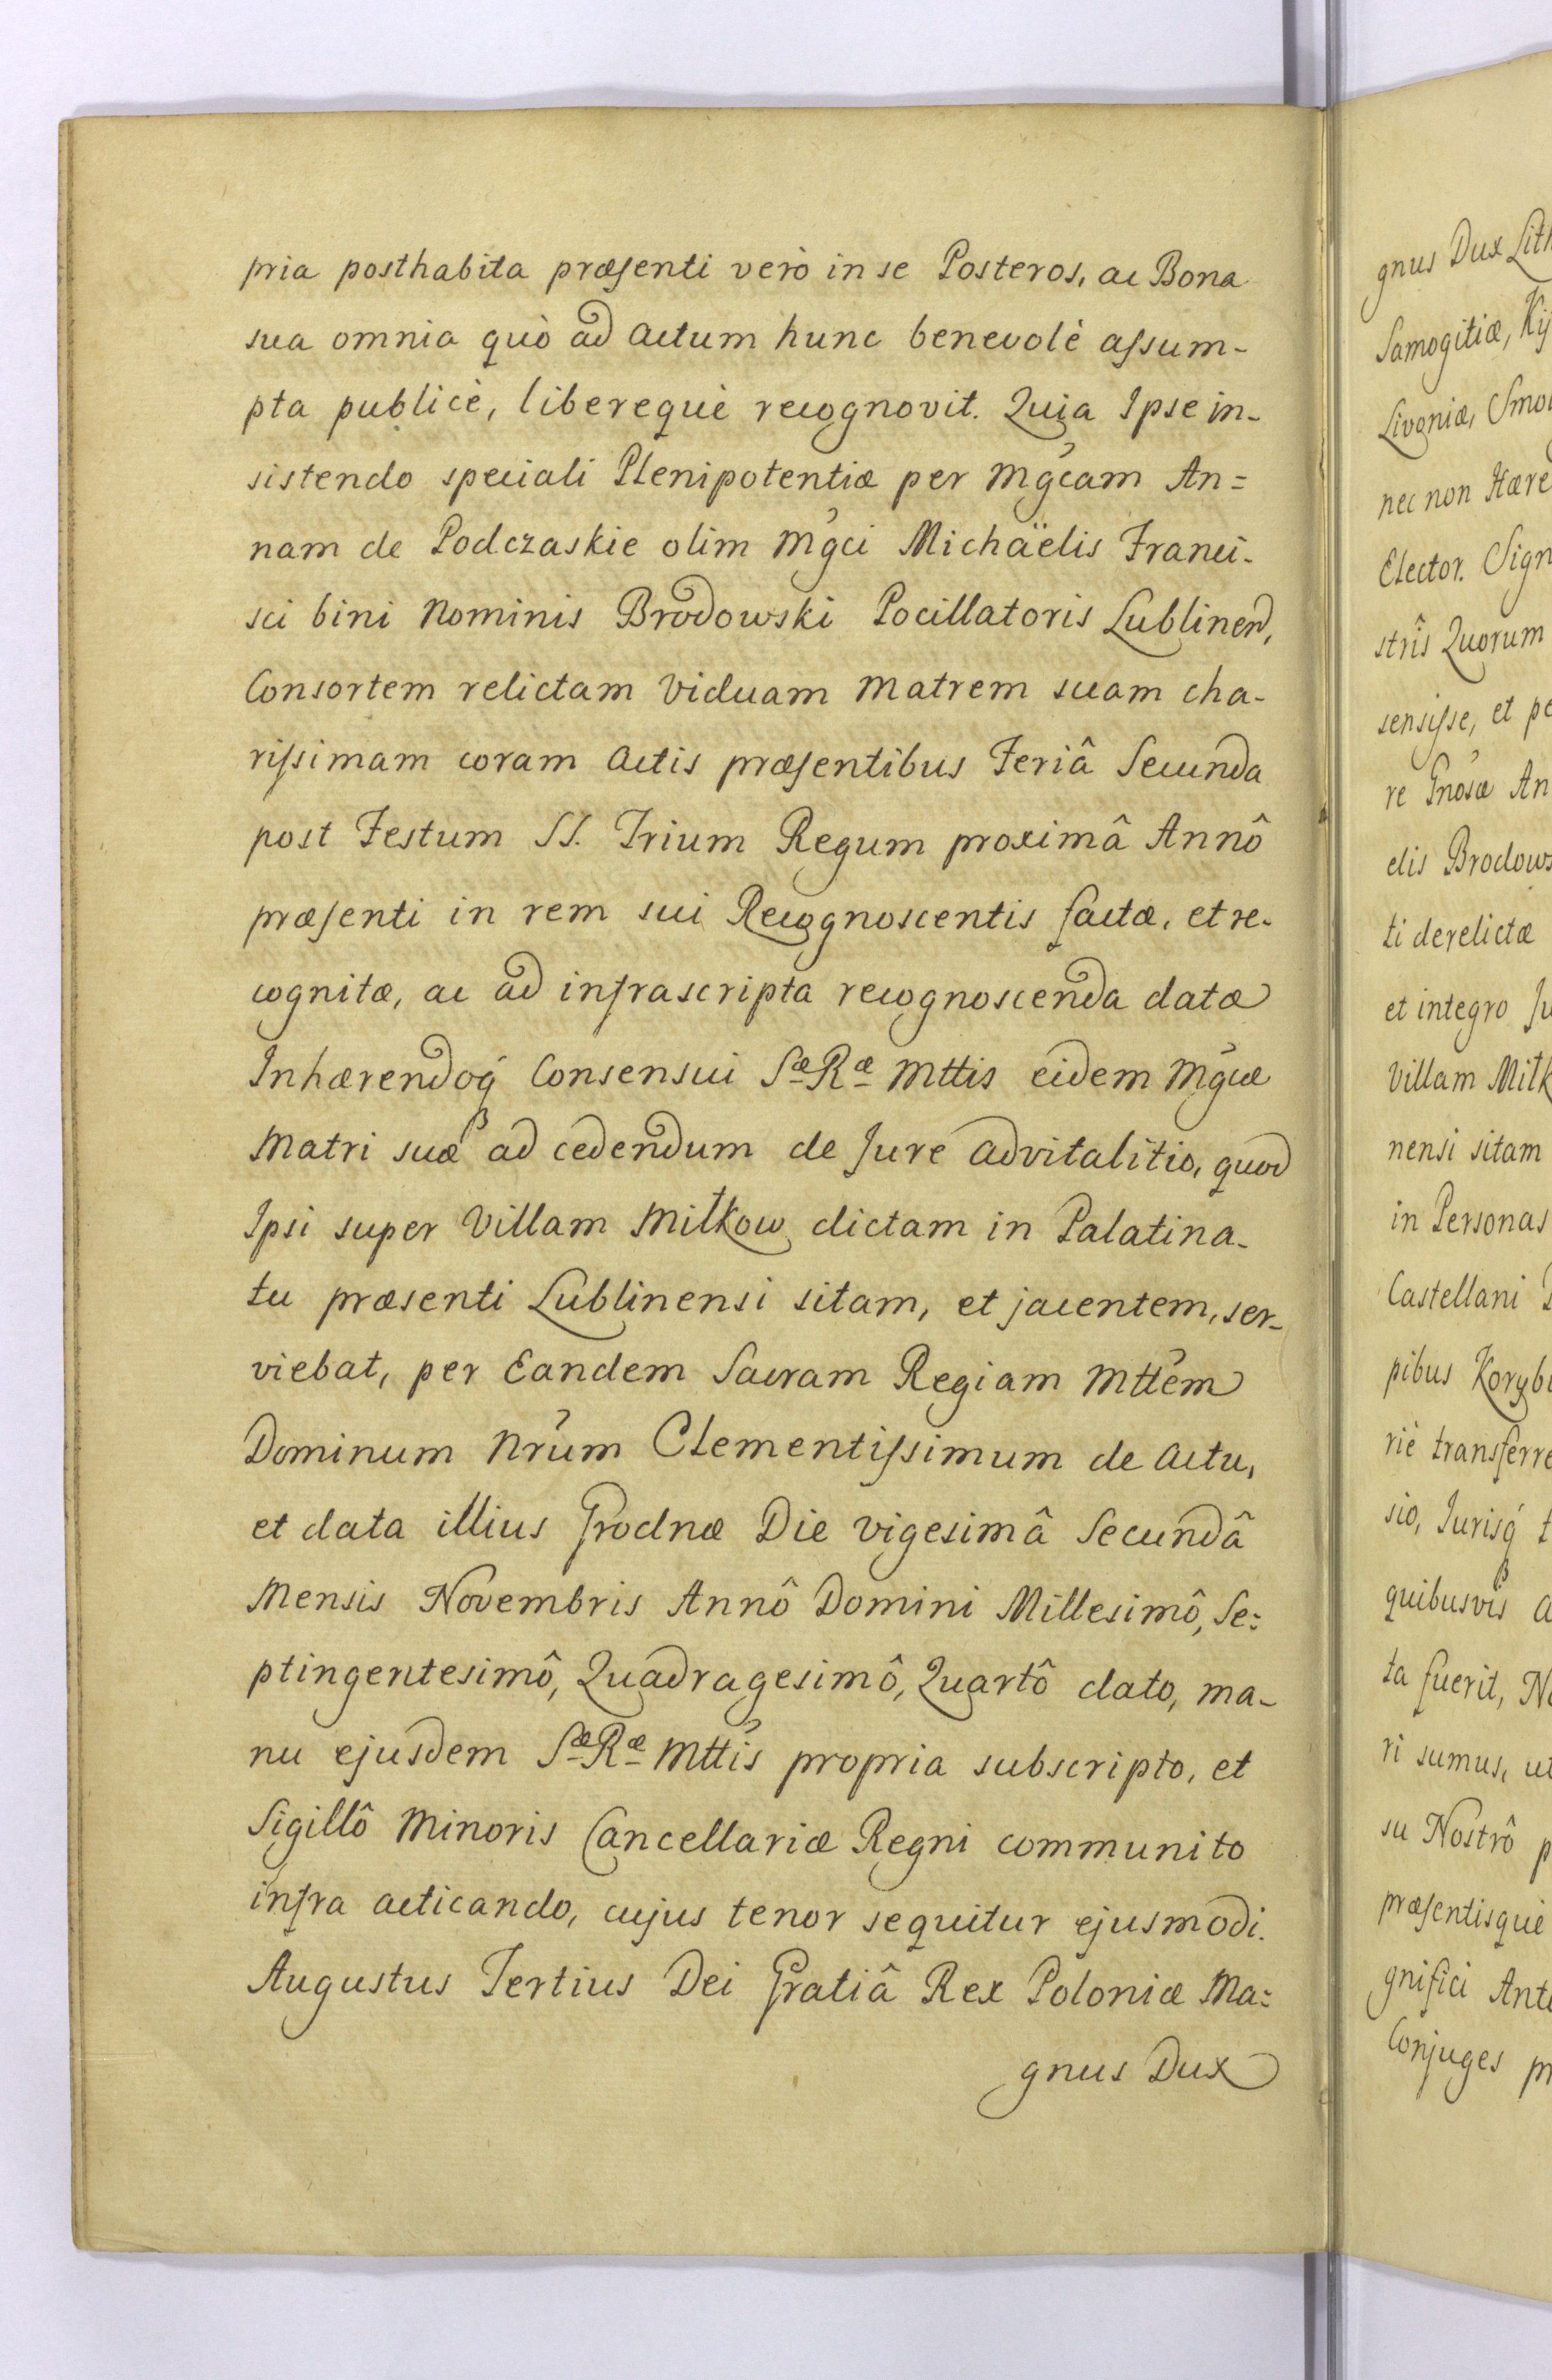 pria posthabita præsenti verò in se Posteros, ac Bona
sua omnia quò ad Actum hunc benevolè assum-
pta publicè, liberequè recognovit. Quia Ipse in-
sistendo speciali Plenipotentiæ per Mgcam An=
nam de Podczaskie olim Mgci Michaëlis Franci-
sci bini Nominis Brodowski Pocillatoris Lublinen,
Consortem relictam Viduam Matrem suam cha-
rissimam coram Actis præsentibus Feriâ Secunda
post Festum SS. Trium Regum proximâ Annô
præsenti in rem sui Recognoscentis factæ, et re-
cognitæ, ac ad infrascripta recognoscenda datæ
Inhærendoq́ Consensui Sæ Ræ Mttis eidem Mgcæ
Matri suæ ad cedendum de Jure advitalitio, quod
Ipsi super Villam Miłkow dictam in Palatina-
tu præsenti Lublinensi sitam, et jacentem, ser-
viebat, per Eandem Sacram Regiam Mttem
Dominum Nrum Clementissimum de Actu,
et data illius Grodnæ Die vigesimâ Secundâ
Mensis Novembris Annô Domini Millesimô, Se=
ptingentesimô, Quadragesimô, Quartô dato, ma-
nu ejusdem Sæ Ræ Mttis propria subscripto, et
Sigillô Minoris Cancellariæ Regni communito
infra acticando, cujus tenor sequitur ejusmodi.
Augustus Tertius Dei Gratiâ Rex Poloniæ Ma=
gnus Dux
gnus Dux Lith
Samogitiæ, Kij
Livoniæ, Smo
nec non Hære
Elector. Sign
stris Quorum
sensisse, et pe
re Gnosæ An
elis Brodows
ti derelictæ
et integro Ju
Villam Miłk
nensi sitam
in Personas
Castellani
pibus Korybu
riè transferre
sio, Jurisq́ t
quibusvis a
ta fuerit, No
ri sumus, ut
su Nostrô p
præsentisquè
gnifici Anto
Conjuges pr